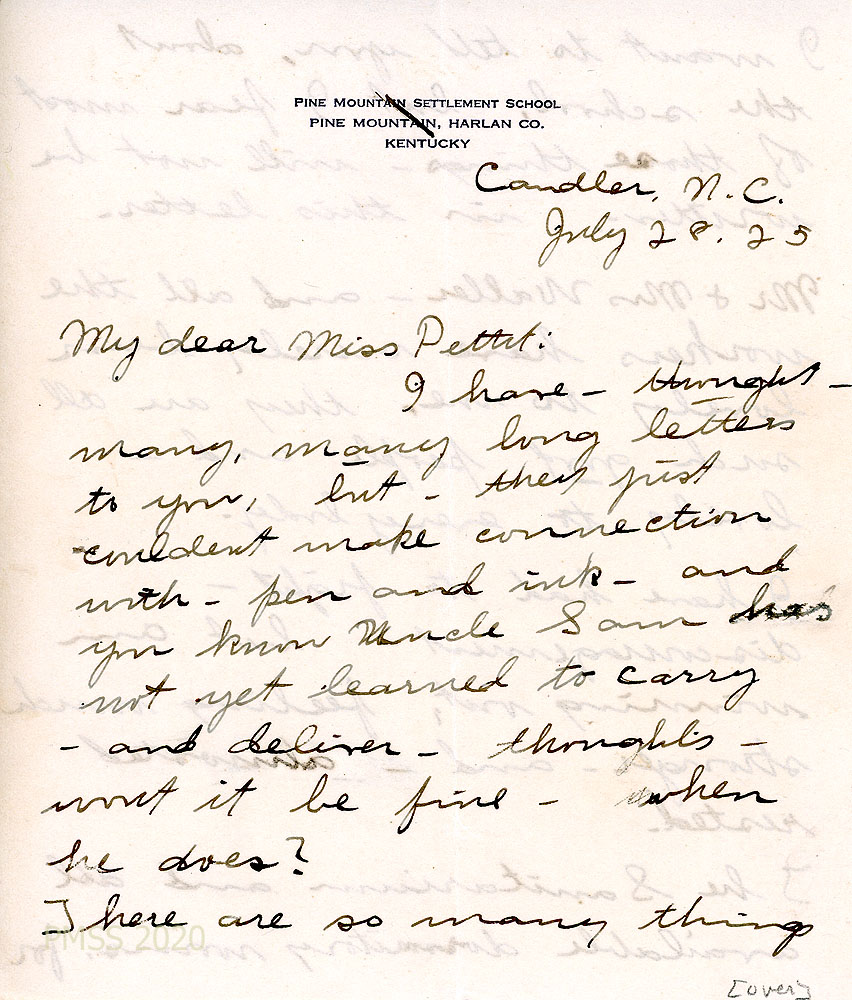 PINE MOUNTAIN SETTLEMENT SCHOOL
PINE MOUNTAIN, HARLAN CO.
KENTUCKY
Candler, N.C.
July 28. 25
My dear Miss Pettit:
I have - thought -
many, many long letters
to you, but - they just
couldent make connection
with - pen and ink - and
you know Uncle Sam has
not yet learned to carry
- and deliver - thoughts -
wont it be fine - when
he does?
There are so many things
PMSS 2020
[over]